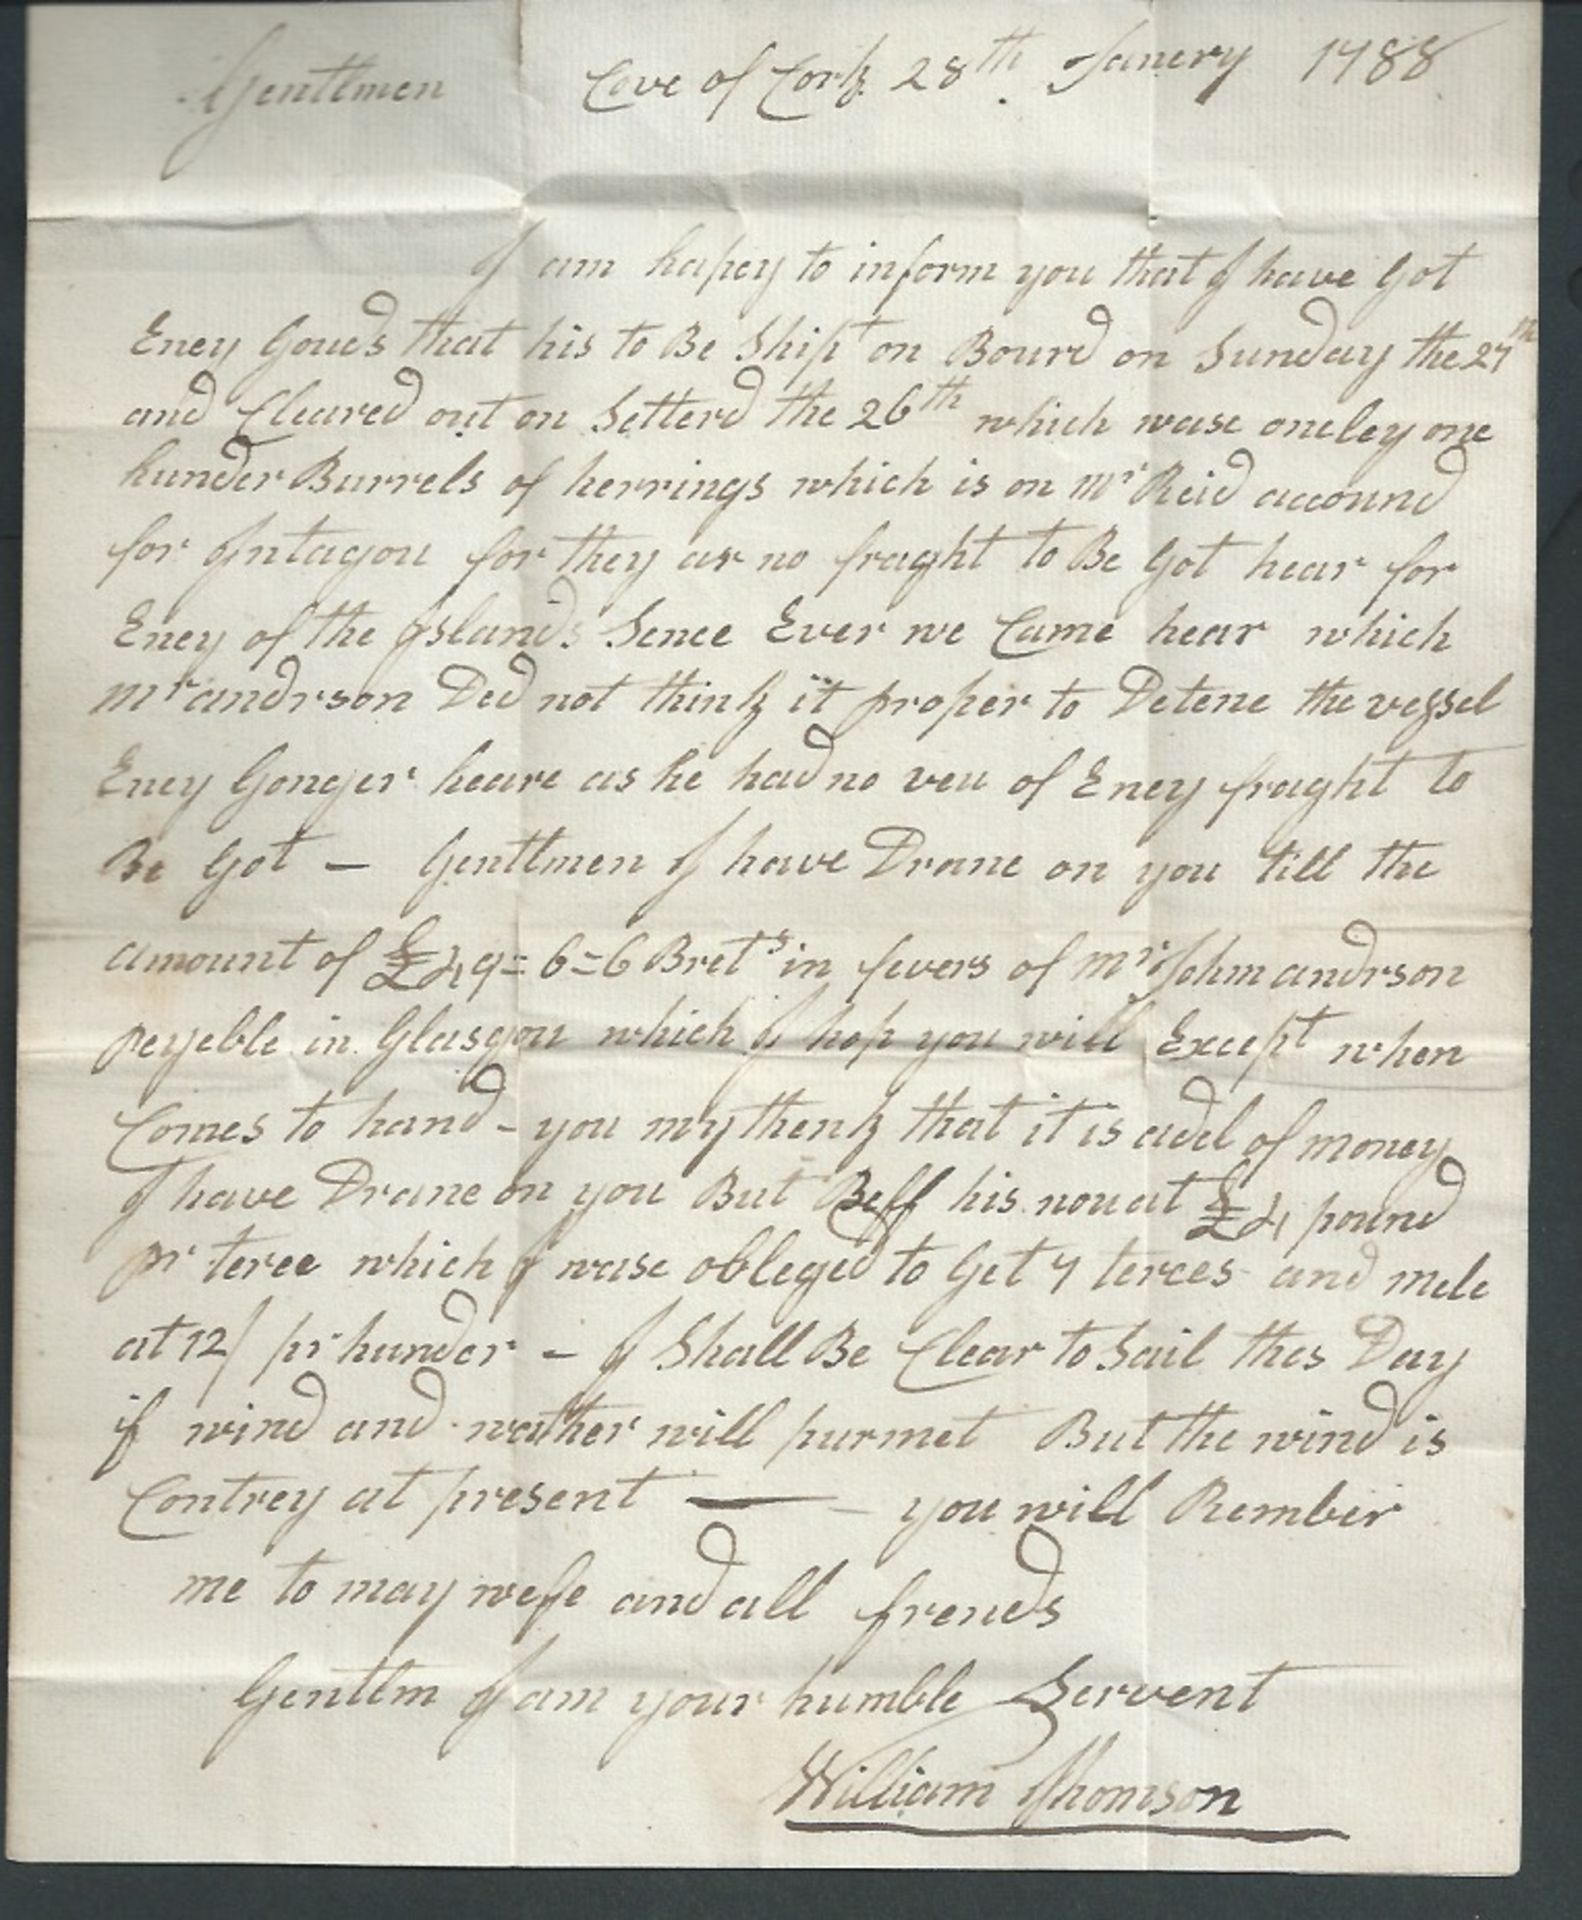 Gentlmen Cove of Cork 28th Janery 1788
I am hapey to inform you that I have Got
Eney Goueds that his to Be Shipt on Bourd on Sunday the 27th
and Cleared out on Setterd the 26th which wase oneley one
hunder Burrels of herrings which is on Mr Reid accound
for Antagou for they ar no fraght to Be Got hear for
Eney of the Islands Sence Ever we Came hear which
Mr andrson Ded not think it proper to Detene the vessel
Eney Gonger heare as he had no veu of Eney fraght to
Be Got — Gentlmen I have Drane on you till the
amount of £49=6=6 Brets in fevers of Mr John andrson
peyeble in Glasgou which I hop you will Except when
Comes to hand - you my thenk that it is adel of money
I have Drane on you But Beff his nou at £4 pound
pr terce which I wase obleged to Get 7 terces and mele
at 12/ pr hunder - I Shall Be Clear to Sail thes Day
if wind and wather will purmet But the wind is
Contrey at present — you will Rember
me to may wefe and all frends
Gentlm I am your humble Servent
William Thomson